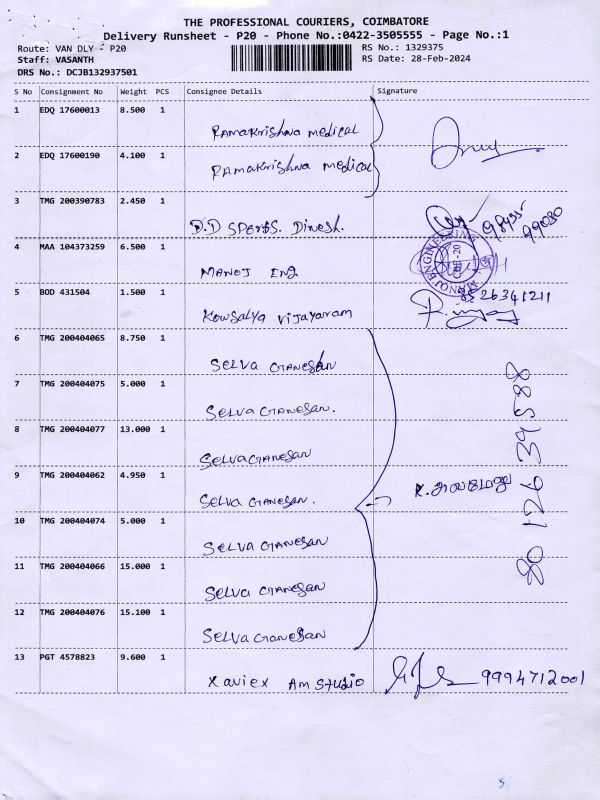 THE PROFESSIONAL COURIERS, COIMBATORE
Delivery Runsheet - P20 - Phone No.:0422-3505555 - Page No.:1
Route: VAN DLY - P20 RS No.: 1329375
Staff: VASANTH RS Date: 28-Feb-2024
DRS No.: DCJB132937501
S No Consignment No Weight PCS Consignee Details Signature
1 EDQ 17600013 8.500 1
Ramakrishna medical
2 EDQ 17600190 4.100 1
Ramakrishna medical
3 TMG 200390783 2.450 1
D.D Sports. Dinesh. 98455
99080
4 MAA 104373259 6.500 1
Manoj Eng MANOJ ENGINEERING
5 BOD 431504 1.500 1 8526341211
Kowsalya Vijayaram
6 TMG 200404065 8.750 1
Selva Ganesan
7 TMG 200404075 5.000 1
Selva Ganesan.
8 TMG 200404077 13.000 1
Selva Ganesan
9 TMG 200404062 4.950 1
Selva Ganesan.
80 126 39588
10 TMG 200404074 5.000 1
Selva Ganesan
11 TMG 200404066 15.000 1
Selva Ganesan
12 TMG 200404076 15.100 1
Selva Ganesan
13 PGT 4578823 9.600 1
Xaviex Am Studio 9994712001